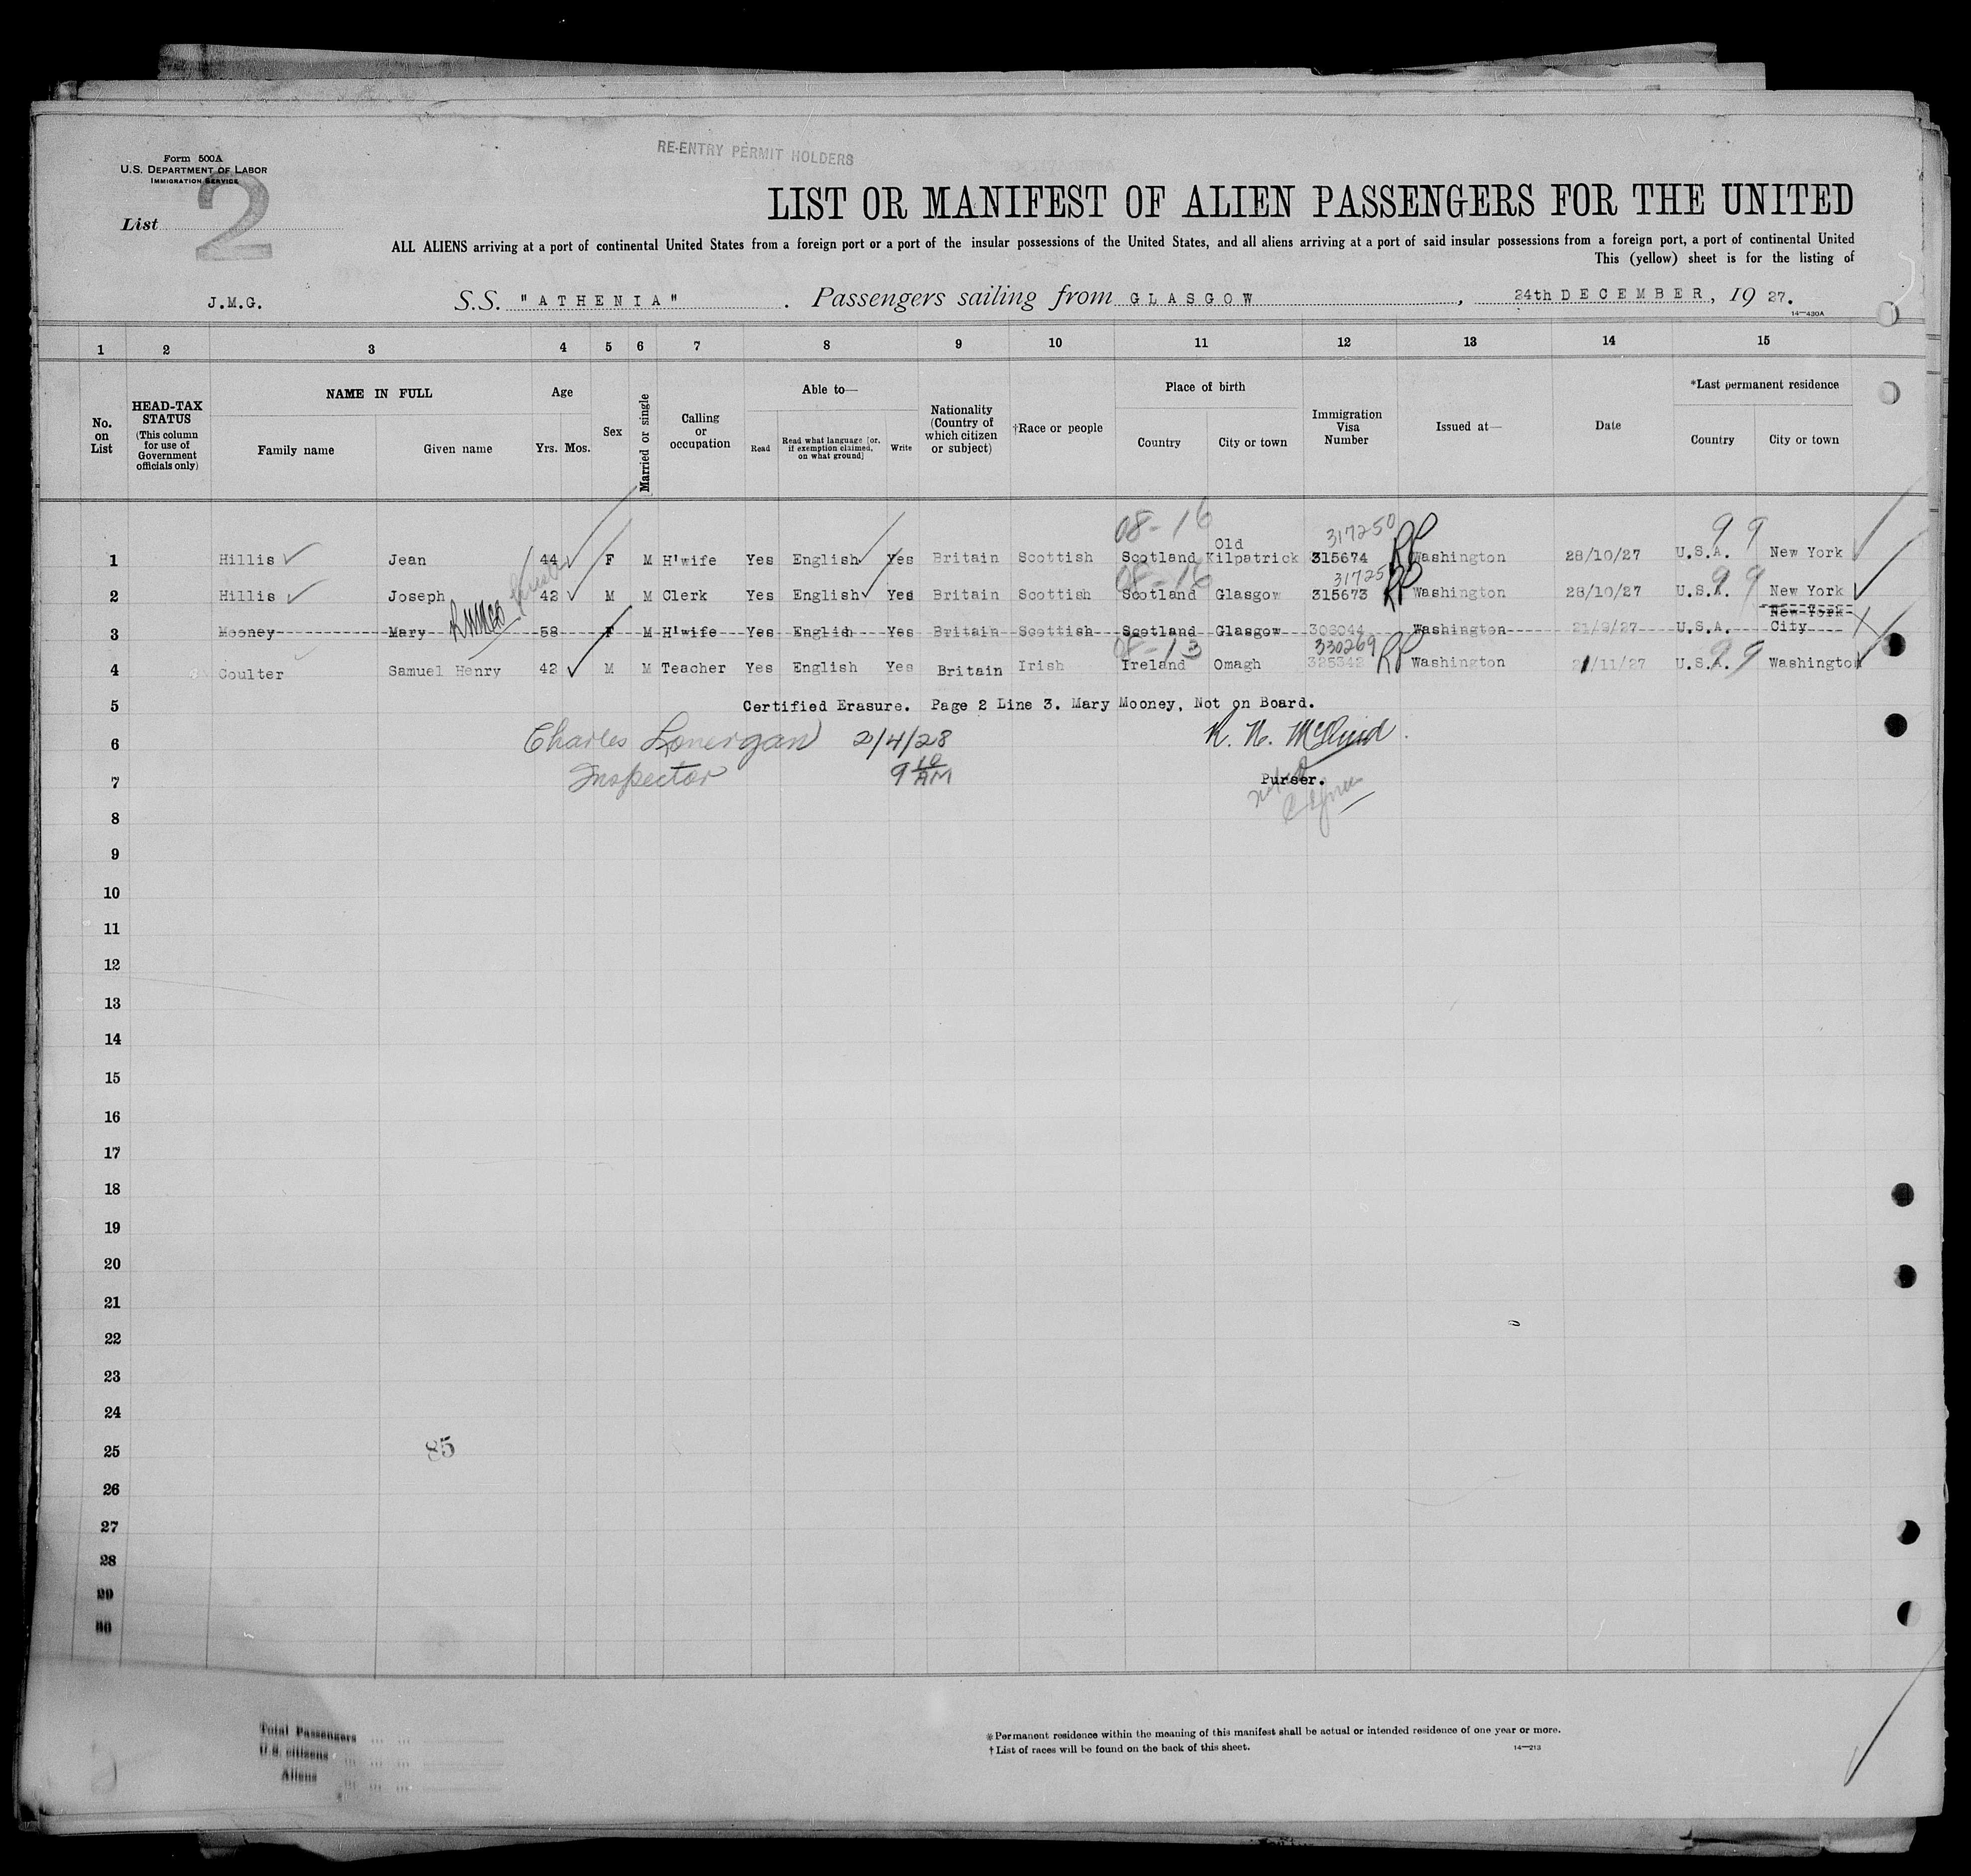 RE-ENTRY PERMIT HOLDERS
Form 500A
U.S. DEPARTMENT OF LABOR
IMMIGRATION SERVICE
List 2
LIST OR MANIFEST OF ALIEN PASSENGERS FOR THE UNITED
ALL ALIENS arriving at a port of continental United States from a foreign port or a port of the insular possessions of the United States, and all aliens arriving at a port of said insular possessions from a foreign port, a port of continental United
This (yellow) sheet is for the listing of
J.M.G. S.S. "ATHENIA". Passengers sailing from GLASGOW, 24th DECEMBER, 19 27.
14—430A
1 2 3 4 5 6 7 8 9 10 11 12 13 14 15
No. on List
HEAD-TAX STATUS
(This column for use of Government officials only)
NAME IN FULL
Family name Given name
Age
Yrs. Mos.
Sex
Married or single
Calling or occupation
Able to—
Read Read what language [or, if exemption claimed, on what ground] Write
Nationality (Country of which citizen or subject)
†Race or people
Place of birth
Country City or town
Immigration Visa Number
Issued at—
Date
*Last permanent residence
Country City or town
08-16 317250 99
1 Hillis Jean 44 F M H'wife Yes English Yes Britain Scottish Scotland Old Kilpatrick 315674 RP Washington 28/10/27 U.S.A. New York
08-16 31725 99
2 Hillis Joseph 42 M M Clerk Yes English Yes Britain Scottish Scotland Glasgow 315673 RP Washington 28/10/27 U.S.A. New York
3 Mooney Mary 58 F M H'wife Yes English Yes Britain Scottish Scotland Glasgow 303044 Washington 21/9/27 U.S.A. New York City
08-13 330269 99
4 Coulter Samuel Henry 42 M M Teacher Yes English Yes Britain Irish Ireland Omagh 325342 RP Washington 21/11/27 U.S.A. Washington
5 Certified Erasure. Page 2 Line 3. Mary Mooney, Not on Board.
6 Charles Lonergan 2/4/28
7 Inspector 9 10 AM Purser.
8
9
10
11
12
13
14
15
16
17
18
19
20
21
22
23
24
25 85
26
27
28
29
30
Total Passengers
U.S. citizens
Aliens
*Permanent residence within the meaning of this manifest shall be actual or intended residence of one year or more.
†List of races will be found on the back of this sheet.
14—213